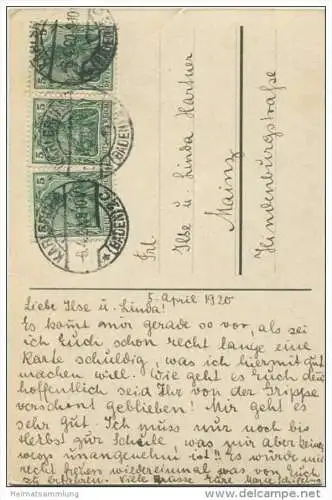 5
5
5
KARLSRUHE
(BADEN)
Frl.
Ilse u. Linda Hartner
Mainz
Hindenburgstraße
5. April 1920
Liebe Ilse u. Linda!
Es kommt mir gerade so vor, als sei
ich Euch schon recht lange eine
Karte schuldig, was ich hiermit gut
machen will. Wie geht es Euch den
hoffentlich seid Ihr von der Grippe
verschont geblieben! Mir geht es
sehr gut. Ich muss nur noch bis
Herbst zur Schule was mir aber
unangenehm ist!! Es würde mich
recht freuen wiedereinmal was von Euch
zu erfahren. Viele Grüsse Eure
www.heimatsammlung.de